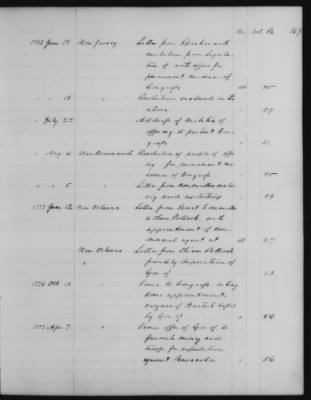 No. Vol. Pg. 167
1783 June 19 New Jersey Letter from Speaker with
resolution from Legisla-
ture of with offer for
permanent residence of
Congress 46 75
" " 18 " Resolution enclosed in the
above " 79
" July 23 " Address of Militia of
offering to protect Con-
gress " 51
" Aug New Brunswick Resolution of people of offer-
ing for permanent res-
idence of Congress " 95
" " 5 " Letter from Committee enclo-
sing said resolution " 99
1777 June 12 New Orleans Letter from Secret Committee
to Oliver Pollock with
appointment of com-
mercial agent at 50 27
New Orleans Letter from Oliver Pollock
" Gov. of " 53
1776 Oct. 10 " Same to Congress
some appointment
of British vessel
by Gov of " 54
1777 Apr. 7 " Same offer of Gov. of to
furnish money and
troops for expedition
against Pensacola " 56